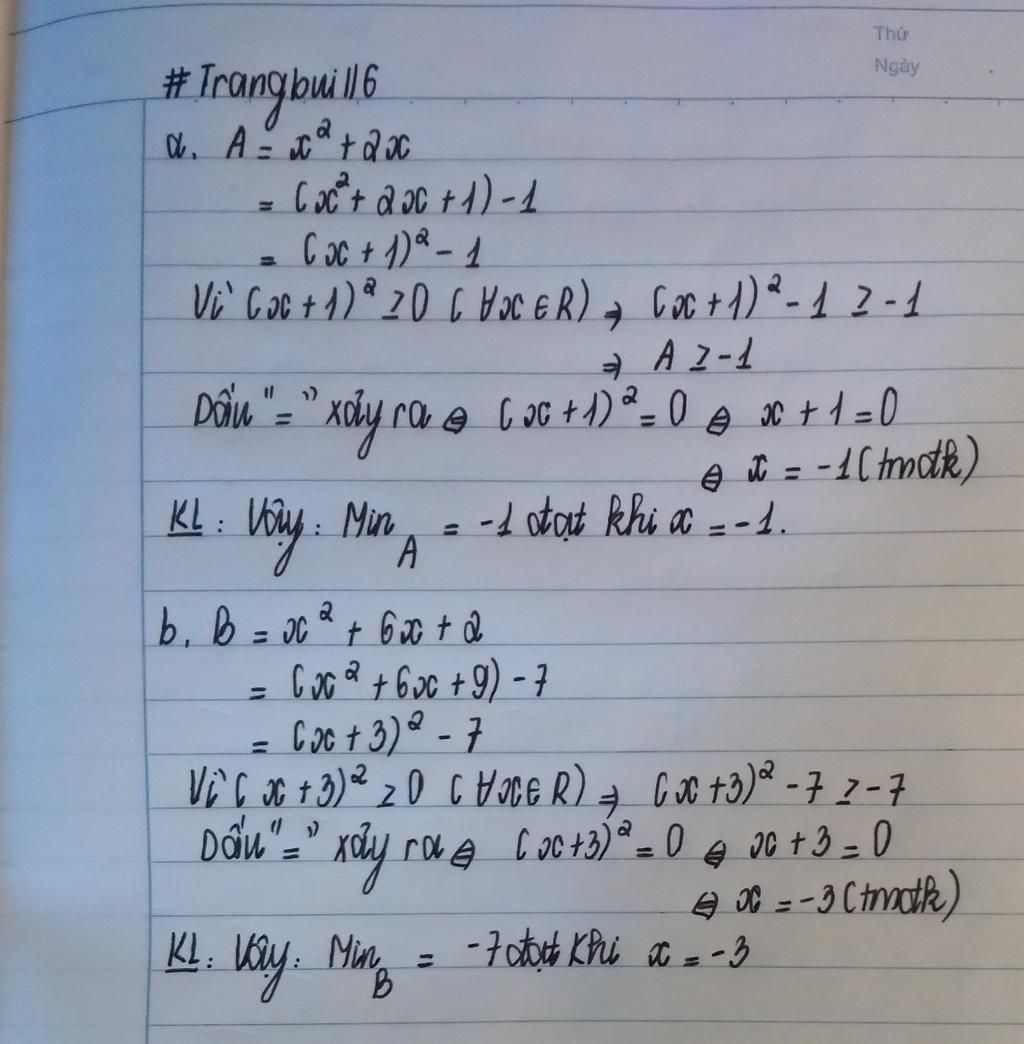 Thứ
Ngày
#Trangbui116
a. A = x² + 2x
= (x² + 2x + 1) - 1
= (x + 1)² - 1
Vì (x + 1)² ≥ 0 (∀x ∈ R) ⇒ (x + 1)² - 1 ≥ -1
⇒ A ≥ -1
Dấu "=" xảy ra ⇔ (x + 1)² = 0 ⇔ x + 1 = 0
⇔ x = -1 (tmđk)
KL: Vậy: Min A = -1 đạt khi x = -1.
b. B = x² + 6x + 2
= (x² + 6x + 9) - 7
= (x + 3)² - 7
Vì (x + 3)² ≥ 0 (∀x ∈ R) ⇒ (x + 3)² - 7 ≥ -7
Dấu "=" xảy ra ⇔ (x + 3)² = 0 ⇔ x + 3 = 0
⇔ x = -3 (tmđk)
KL: Vậy: Min B = -7 đạt khi x = -3